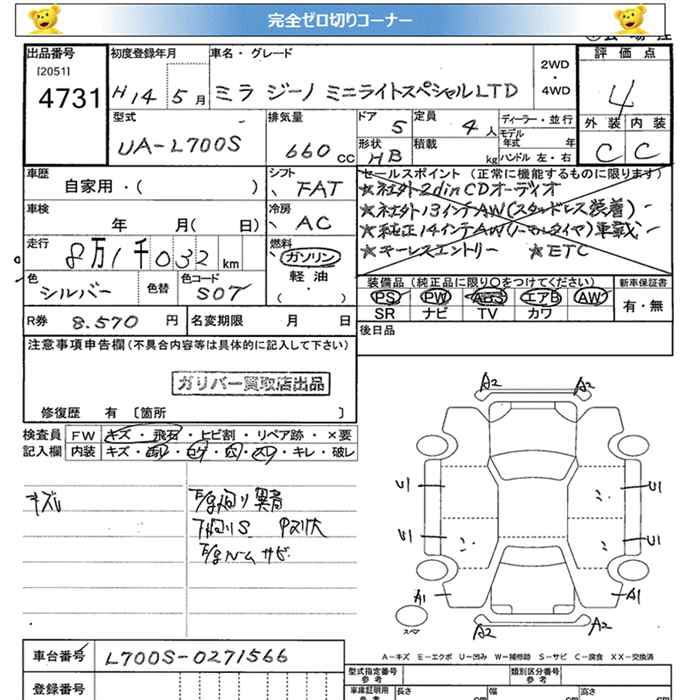 完全ゼロ切りコーナー
出品番号 初度登録年月 車名・グレード 評価点
[2051]
4731 H14 5月 ミラ ジーノ ミニライトスペシャルLTD 2WD・4WD 4
型式 排気量 ドア 定員 ディーラー・並行 外装 内装
UA-L700S 660cc 5 4人 モデル年式 年 C C
形状 積載
HB kg ハンドル 左・右
車歴 シフト セールスポイント (正常に機能するものに限ります)
自家用・( ) FAT ★社外2dinCDオーディオ
車検 冷房 ★社外13インチAW(スタッドレス装着)
年 月( 日) AC ★純正14インチAW(ノーマルタイヤ)車載
走行 燃料 ★キーレスエントリー ★ETC
8万1千032km ガソリン
軽・油
( )
色 色替 色コード 装備品 (純正品に限り○をつけてください) 新車保証書
シルバー S07 PS PW ABS エアB AW 有・無
SR ナビ TV カワ
R券 8.570 円 名変期限 月 日 後日品
注意事項申告欄(不具合内容等は具体的に記入して下さい)
ガリバー買取店出品
修復歴 有 〔箇所 〕
検査員 FW キズ・飛石・ヒビ割・リペア跡・×要
記入欄 内装 キズ・汚レ・コゲ・穴・スレ・キレ・破レ
A2 A2
U1 U1
U1 U1
A1 A1
スペア
A2 A2
A-キズ E-エクボ U-凹み W-補修跡 S-サビ C-腐食 XX-交換済
車台番号 L700S-0271566 型式指定番号 類別区分番号
参考 参考
登録番号 車庫証明用 長さ 幅 高さ
参考 cm cm cm